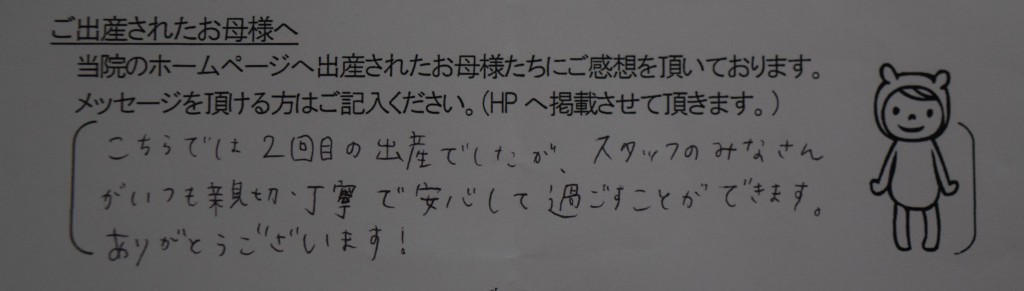 ご出産されたお母様へ
当院のホームページへ出産されたお母様たちにご感想を頂いております。
メッセージを頂ける方はご記入ください。(HPへ掲載させて頂きます。)
こちらでは2回目の出産でしたが、スタッフのみなさん
がいつも親切・丁寧で安心して過ごすことができます。
ありがとうございます!